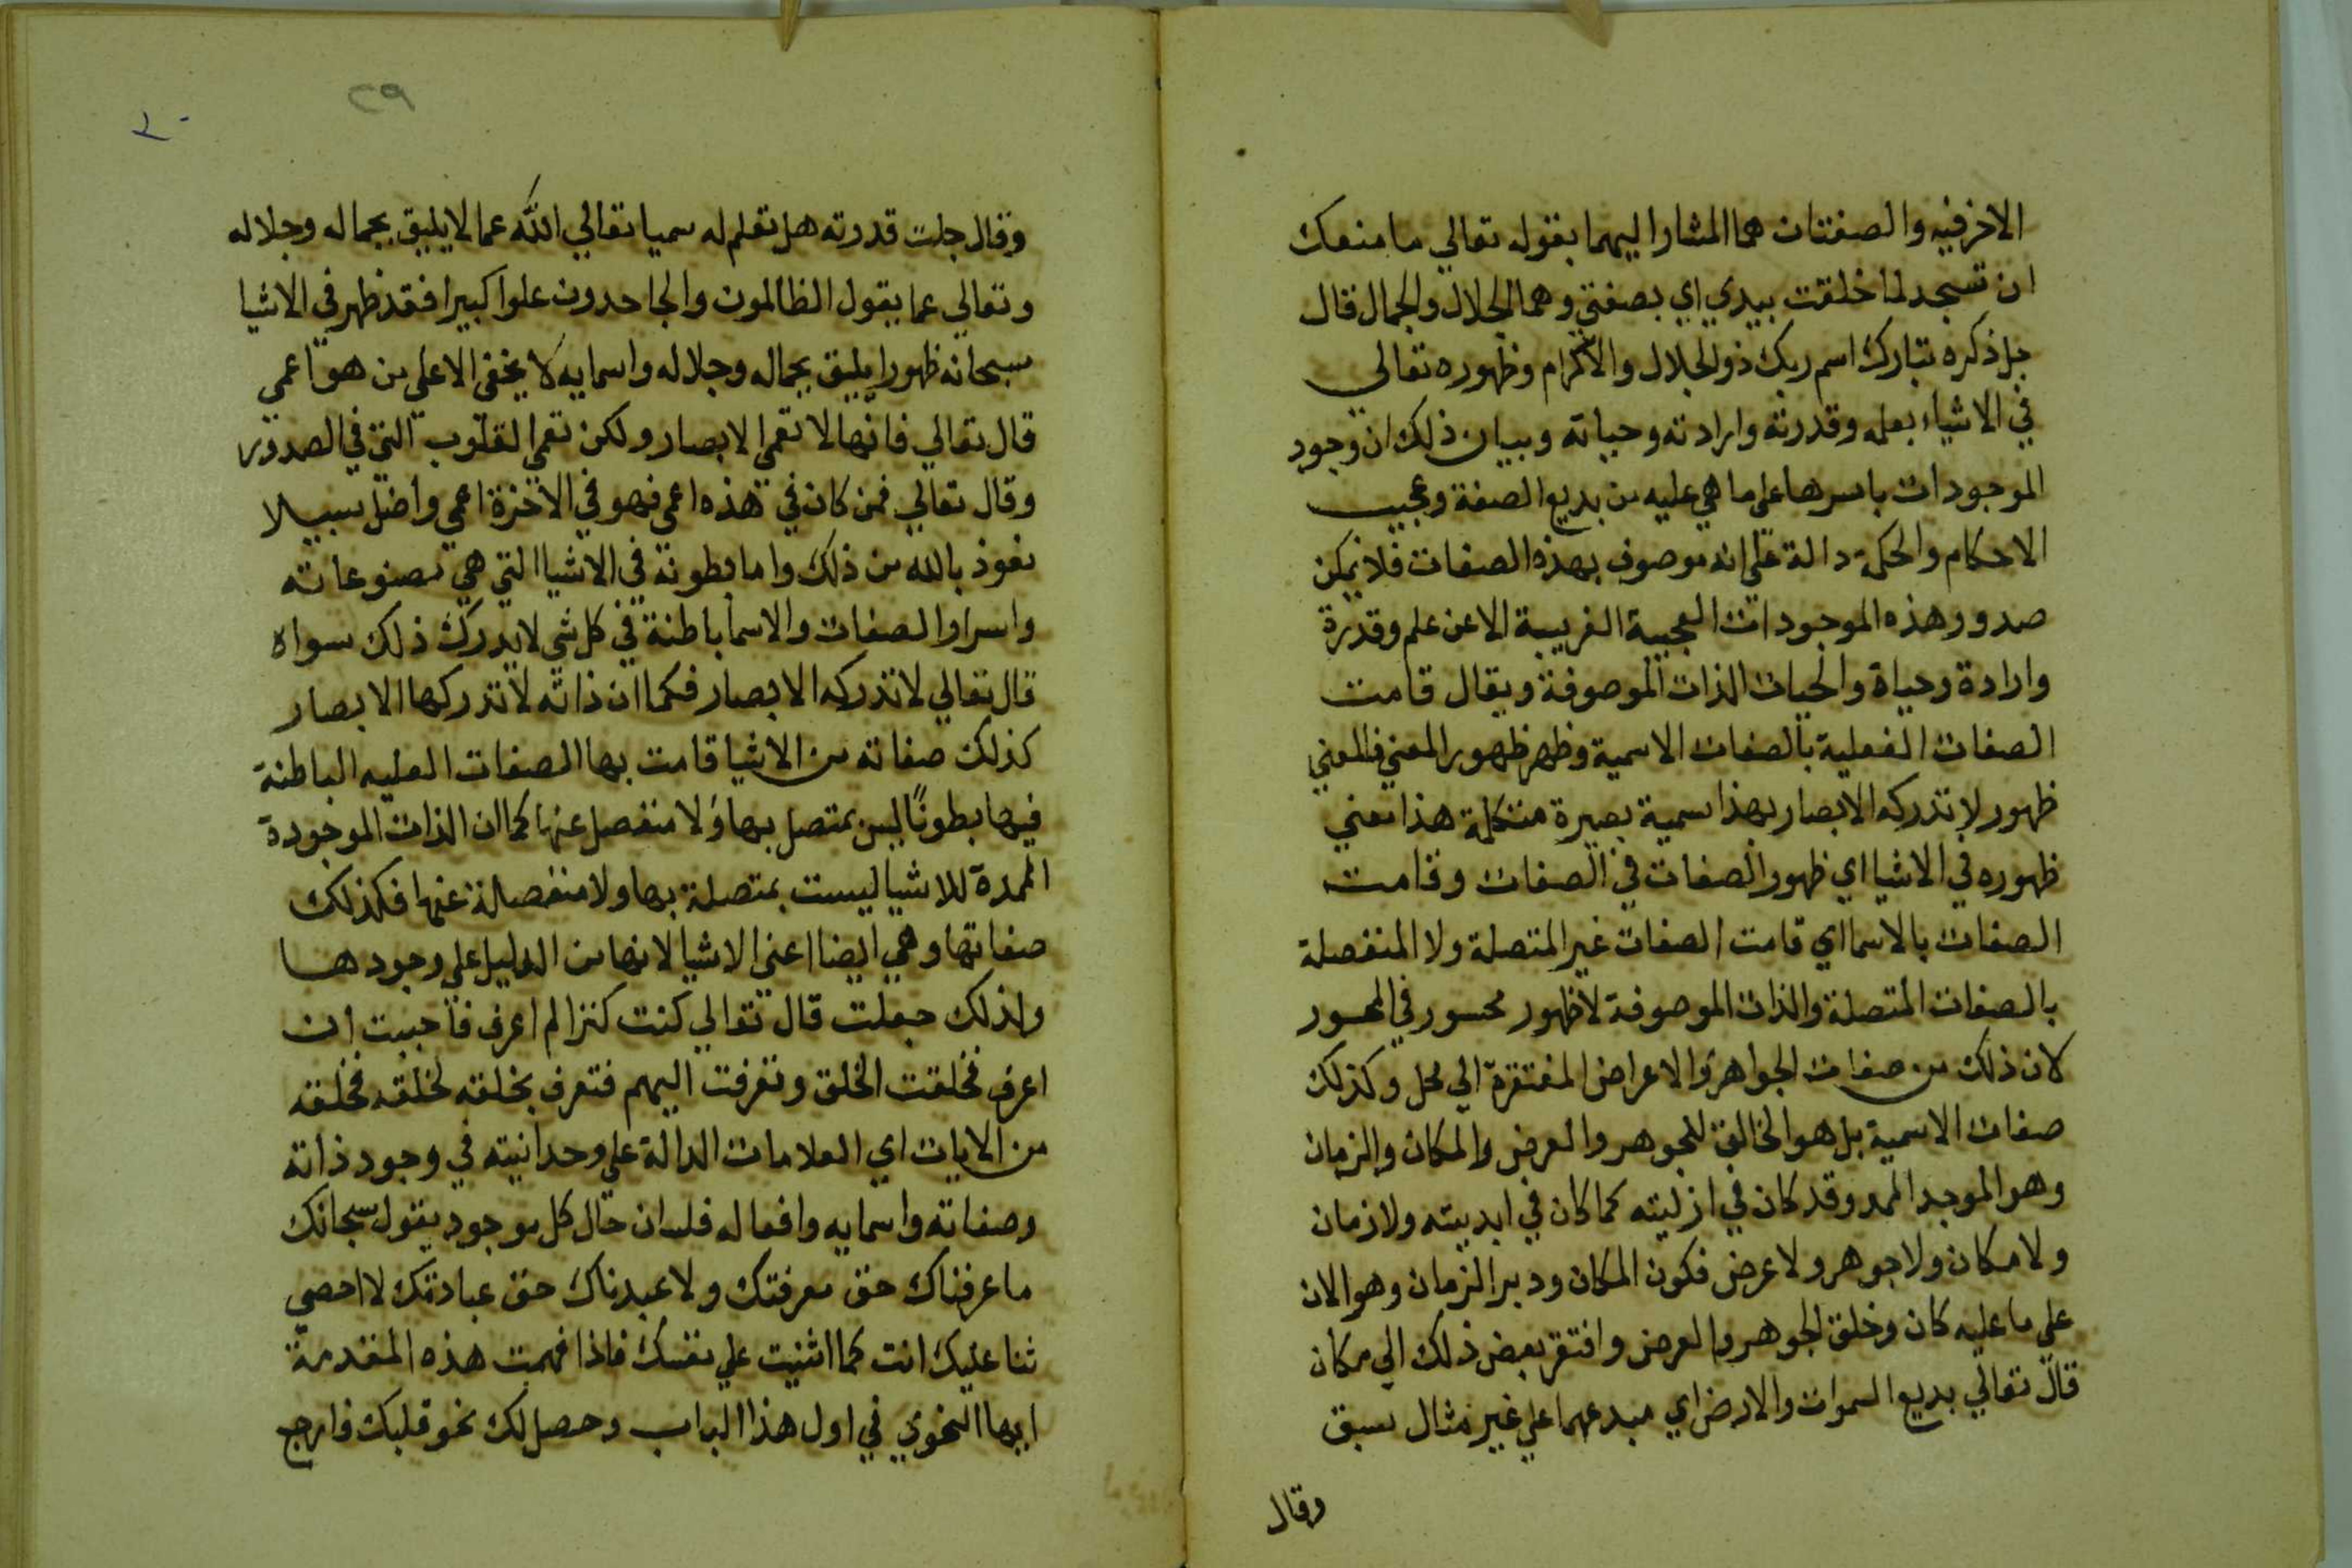 الاخر فيه والصفتان هما المشار اليهما بقوله تعالي ما منعك
ان تسجد لما خلقت بيدي اي بصفتي وهما الجلال والجمال قال
جل ذكره تبارك اسم ربك ذو الجلال والاكرام وظهوره تعالي
في الاشياء بعلمه وقدرته وارادته وحياته وبيان ذلك ان وجود
الموجودات باسرها علي ما هي عليه من بديع الصنعة وعجيب
الاحكام والحكمة دالة علي انه موصوف بهذه الصفات فلا يمكن
صدور هذه الموجودات العجيبة الغريبة الا عن علم وقدرة
وارادة وحياة والحيات الذات الموصوفة ويقال قامت
الصفات الفعلية بالصفات الاسمية وظهر ظهور المعني في المعني
ظهور لا تدركه الابصار بهذا سمية بصيرة هذا معني
ظهوره في الاشيا اي ظهور الصفات في الصفات وقامت
الصفات بالاسما اي قامت الصفات غير المتصلة ولا المنفصلة
بالصفات المتصلة والذات الموصوفة لا ظهور محسور في المحسور
لان ذلك من صفات الجواهر والاعراض المفتقرة الي محل وكذلك
صفات الاسمية بل هو الخالق للجوهر والعرض والمكان والزمان
وهو الموجد الممد وقد كان في ازليته كما كان في ابديته ولا زمان
ولا مكان ولا جوهر ولا عرض فكون المكان ودبر الزمان وهو الان
علي ما عليه كان وخلق الجوهر والعرض وافتقر بعض ذلك الي مكان
قال تعالي بديع السموات والارض اي مبدعهما علي غير مثال سبق
وقال
٢٩
وقال جلت قدرته هل تعلم له سميا تعالي الله عما لا يليق بجماله وجلاله
وتعالي عما يقول الظالمون والجاحدون علوا كبيرا فقد ظهر في الاشيا
سبحانه ظهورا يليق بجماله وجلاله واسمايه لا يخفي الا علي من هو اعمي
قال تعالي فانها لا تعمي الابصار ولكن تعمي القلوب التي في الصدور
وقال تعالي فمن كان في هذه اعمي فهو في الاخرة اعمي واضل سبيلا
نعوذ بالله من ذلك واما بطونه في الاشيا التي هي مصنوعاته
واسرار الصفات والاسما باطنة في كل شي لا يدرك ذلك سواه
قال تعالي لا تدركه الابصار فكما ان ذاته لا تدركها الابصار
كذلك صفاته من الاشيا قامت بها الصفات العليه الباطنة
فيها بطونًا ليس بمتصل بها ولا منفصل عنها كما ان الذات الموجودة
الممدة للاشيا ليست بمتصلة بها ولا منفصلة عنها فكذلك
صفاتها وهي ايضا اعني الاشيا لانها من الدليل علي وجودها
ولذلك جعلت قال تعالي كنت كنزا لم اعرف فاحببت ان
اعرف فخلقت الخلق وتعرفت اليهم فتعرف بخلقه لخلقه فخلقه
من الايات اي العلامات الدالة علي وحدانيته في وجود ذاته
وصفاته واسمايه وافعاله فلسان حال كل موجود يقول سبحانك
ما عرفناك حق معرفتك ولا عبدناك حق عبادتك لا احصي
ثنا عليك انت كما اثنيت علي نفسك فاذا فهمت هذه المقدمة
ايها النحوي في اول هذا الباب وحصل لك نحو قلبك فارجع